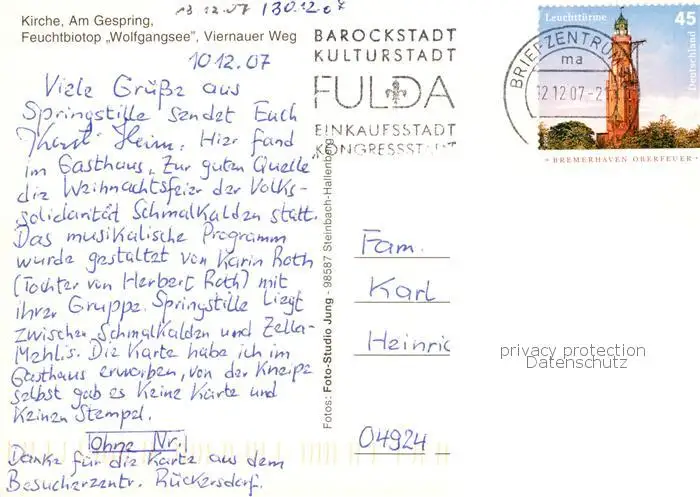 13.12.07 / 30.12.07
Kirche, Am Gespring,
Feuchtbiotop „Wolfgangsee", Viernauer Weg
10.12.07
Viele Grüße aus
Springstille sendet Euch
Karl-Heinz. Hier fand
im Gasthaus „Zur guten Quelle
die Weihnachtsfeier der Volks-
solidarität Schmalkalden statt.
Das musikalische Programm
wurde gestaltet von Karin Roth
(Tochter von Herbert Roth) mit
ihrer Gruppe. Springstille liegt
zwischen Schmalkalden und Zella-
Mehlis. Die Karte habe ich im
Gasthaus erworben, von der Kneipe
selbst gab es keine Karte und
keinen Stempel.
Ohne Nr.
Danke für die Karte aus dem
Besucherzentr. Rückersdorf.
Fotos: Foto-Studio Jung - 98587 Steinbach-Hallenberg
BAROCKSTADT
KULTURSTADT
FULDA
EINKAUFSSTADT
KONGRESSSTADT
BRIEFZENTRUM
ma
12.12.07-21
Leuchttürme
45
Deutschland
BREMERHAVEN OBERFEUER
Fam.
Karl
Heinric
04924
privacy protection
Datenschutz